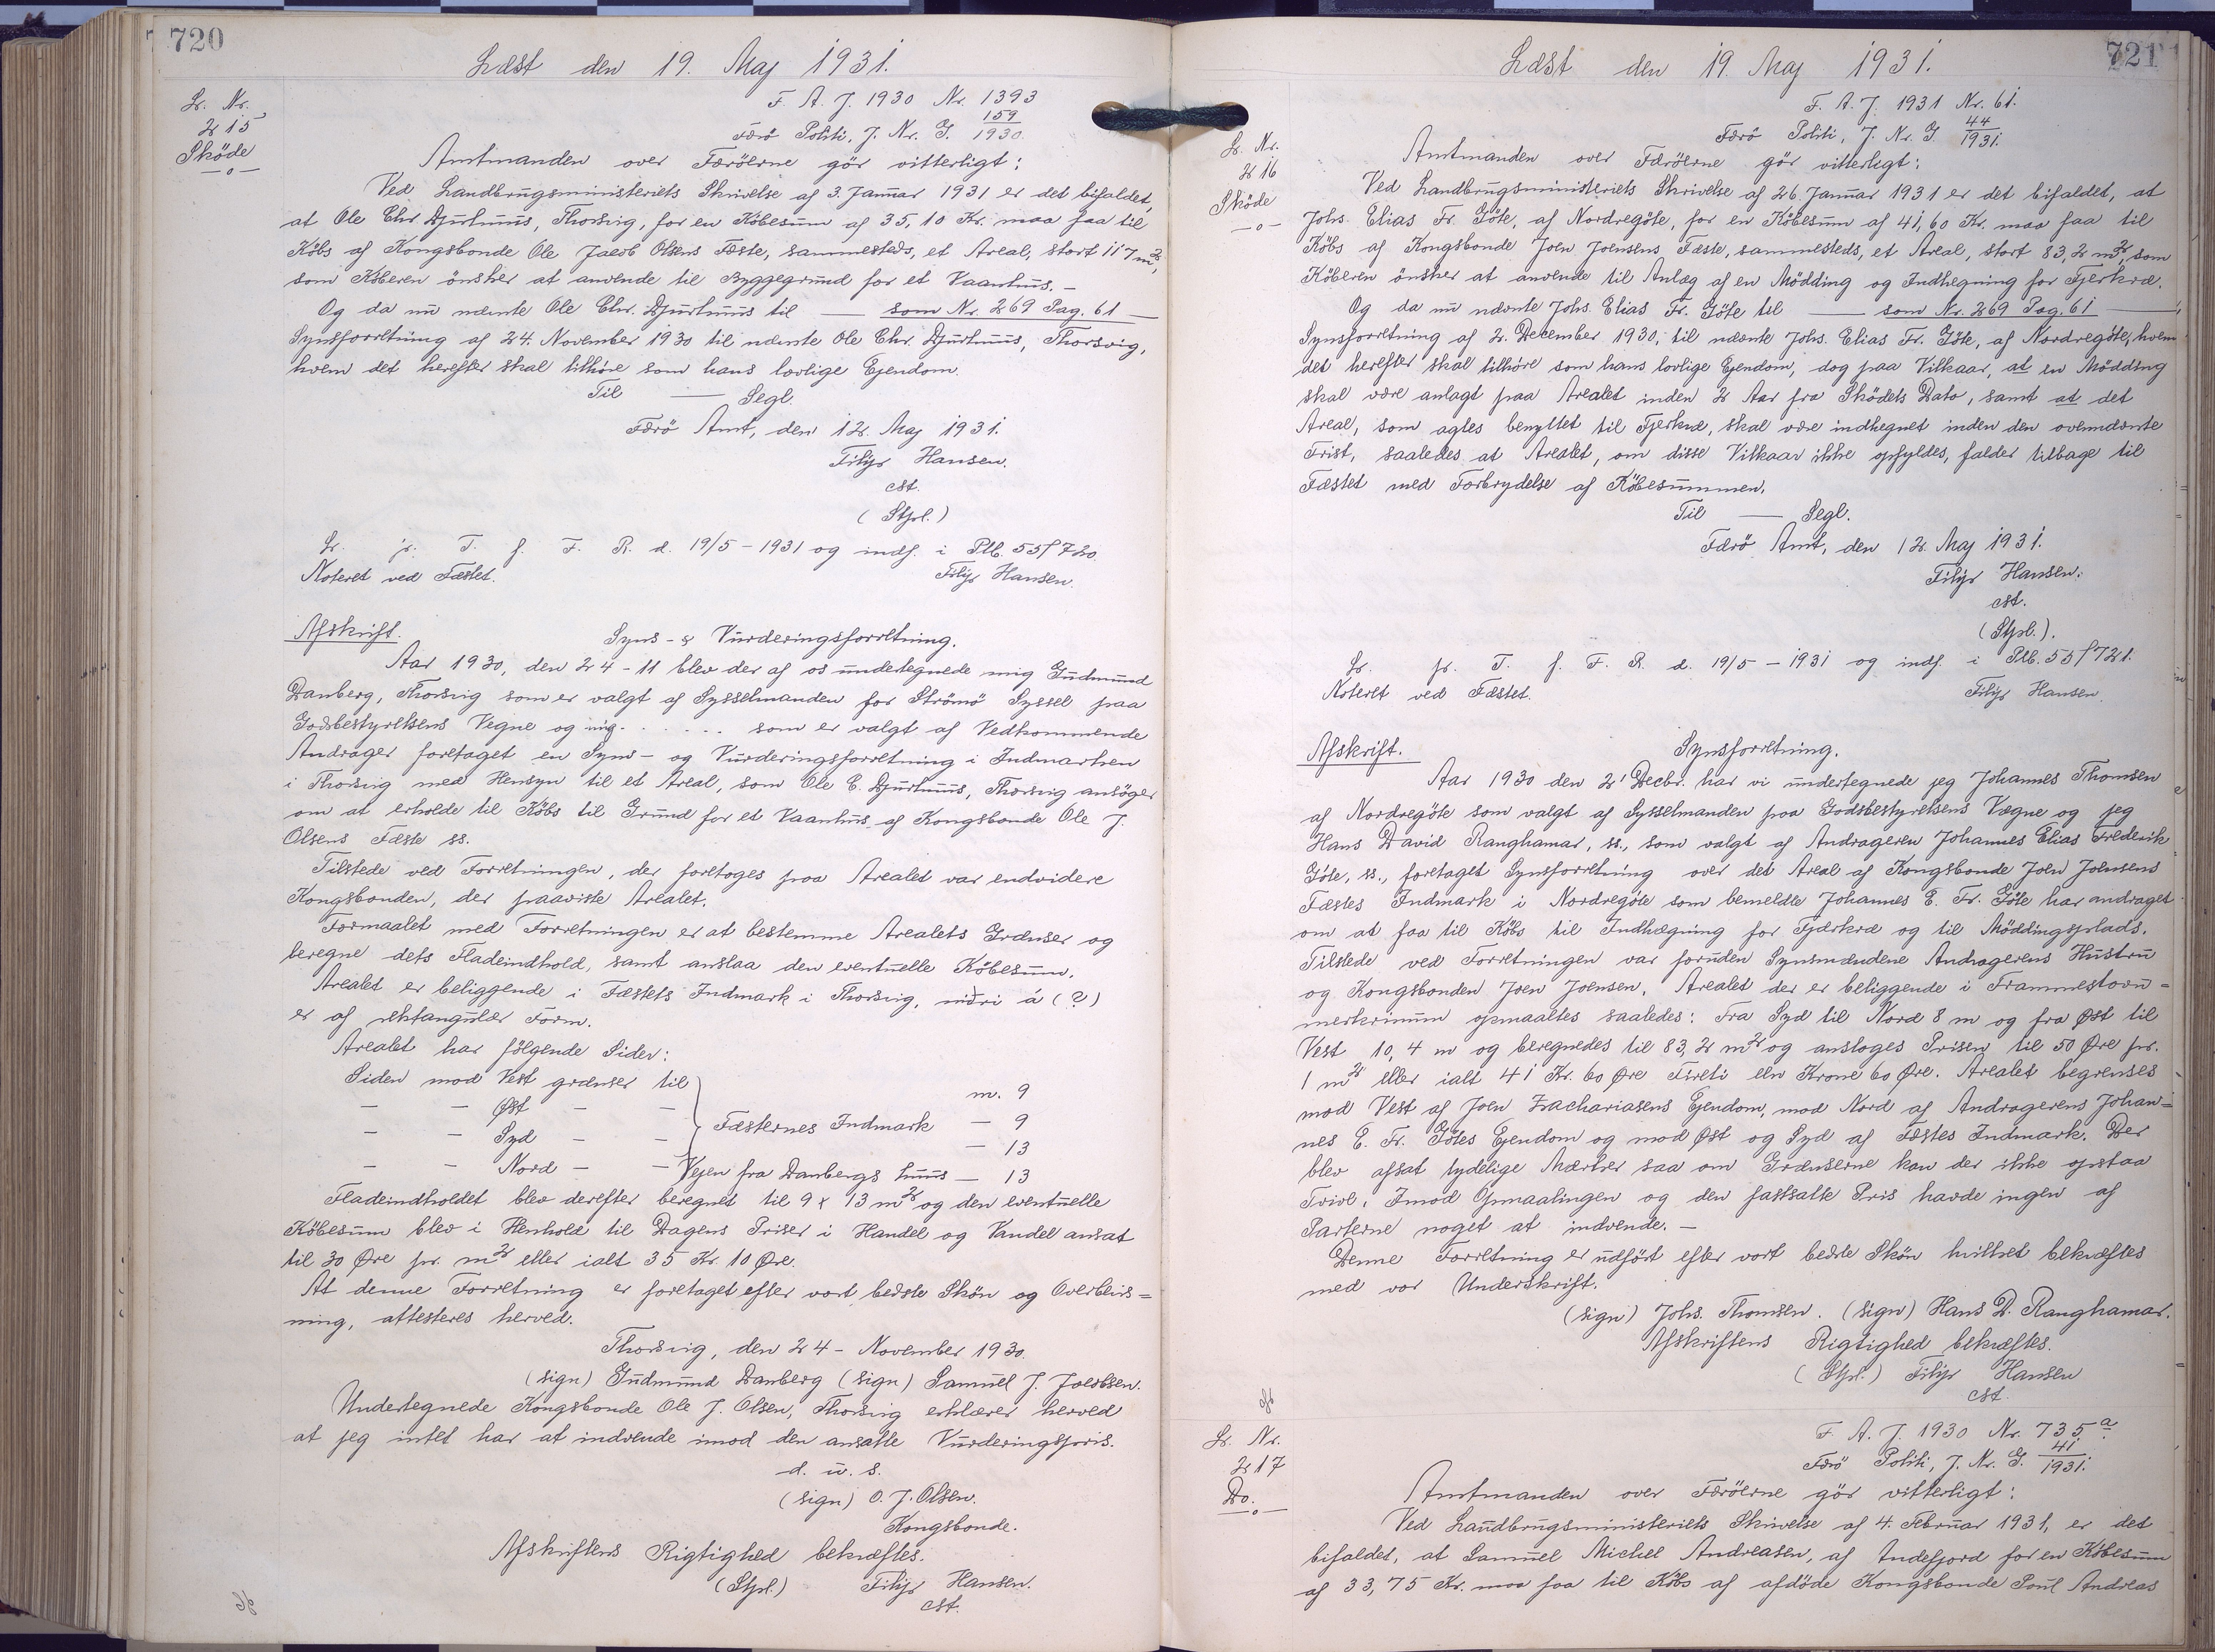 720
Læst den 19. Maj 1931.
Lr. Nr.
215
Sköde
—o—
F. A. J. 1930 Nr. 1393
Færö Politi, J. Nr. G. 159/1930.
Amtmanden over Færöerne gör vitterligt:
Ved Landbrugsministeriets Skrivelse af 3. Januar 1931 er det bifaldet,
at Ole Chr. Djurhuus, Thorsvig, for en Köbesum af 35,10 Kr. maa faa til
Köbs af Kongsbonde Ole Jacob Olsens Fæste, sammesteds, et Areal, stort 117 m²,
som Köberen önsker at anvende til Byggegrund for et Vaanhus. —
Og da nu nævnte Ole Chr. Djurhuus til —— som Nr. 269 Pag. 61 ——
Synsforretning af 24. November 1930 til nævnte Ole Chr. Djurhuus, Thorsvig,
hvem det herefter skal tilhöre som hans lovlige Ejendom.
Til —— Segl.
Færö Amt, den 12. Maj 1931.
Filip Hansen.
cst.
(Stpl.)
Lr. p. T. f. F. R. d. 19/5 - 1931 og indf. i Ptb. 55f720.
Noteret ved Fæstet. Filip Hansen.
Afskrift. Syns- & Vurderingsforretning.
Aar 1930, den 24-11 blev der af os undertegnede mig Gudmund
Danberg, Thorsvig som er valgt af Sysselmanden for Strömö Syssel paa
Godsbestyrelsens Vegne og mig. . . . . . som er valgt af Vedkommende
Andrager foretaget en Syns- og Vurderingsforretning i Indmarken
i Thorsvig med Hensyn til et Areal, som Ole C. Djurhuus, Thorsvig ansöger
om at erholde til Köbs til Grund for et Vaanhus af Kongsbonde Ole J.
Olsens Fæste ss.
Tilstede ved Forretningen, der foretoges paa Arealet var endvidere
Kongsbonden, der paaviste Arealet.
Formaalet med Forretningen er at bestemme Arealets Grænser og
beregne dets Fladeindhold, samt anslaa den eventuelle Köbesum.
Arealet er beliggende i Fæstets Indmark i Thorsvig, niðri á (?)
er af rektangulær Form.
Arealet har fölgende Sider:
Siden mod Vest grænser til m. 9
— — Øst — — Fæsternes Indmark — 9
— — Syd — — — 13
— — Nord — — Vejen fra Danbergs huus — 13
Fladeindholdet blev derefter beregnet til 9 x 13 m² og den eventuelle
Köbesum blev i Henhold til Dagens Priser i Handel og Vandel ansat
til 30 Øre pr. m² eller ialt 35 Kr. 10 Øre.
At denne Forretning er foretaget efter vort bedste Skön og Overbevis=
ning, attesteres herved.
Thorsvig, den 24 - November 1930.
(sign) Gudmund Danberg (sign) Samuel J. Jacobsen.
Undertegnede Kongsbonde Ole J. Olsen, Thorsvig erklærer herved
at jeg intet har at indvende imod den ansatte Vurderingspris.
d. u. s.
(sign) O. J. Olsen.
Kongsbonde.
Afskriftens Rigtighed bekræftes.
(Stpl.) Filip Hansen.
cst.
721
Læst den 19. Maj 1931.
Lr. Nr.
216
Sköde
—o—
F. A. J. 1931 Nr. 61.
Færö Politi, J. Nr. G 44/1931.
Amtmanden over Færöerne gör vitterlegt:
Ved Landbrugsministeriets Skrivelse af 26. Januar 1931 er det bifaldet, at
Johs. Elias Fr. Göte, af Nordregöte, for en Köbesum af 41,60 Kr. maa faa til
Köbs af Kongsbonde Joen Joensens Fæste, sammesteds, et Areal, stort 83,2 m², som
Köberen önsker at anvende til Anlæg af en Mödding og Indhegning for Fjerkræ.
Og da nu nævnte Johs. Elias Fr. Göte til —— som Nr. 269 Pag. 61 ——
Synsforretning af 2. December 1930, til nævnte Johs. Elias Fr. Göte, af Nordregöte, hvem
det herefter skal tilhöre som hans lovlige Ejendom, dog paa Vilkaar, at en Mödding
skal være anlagt paa Arealet inden 2 Aar fra Sködets Dato, samt at det
Areal, som agtes benyttet til Fjerkræ, skal være indhegnet inden den ovennævnte
Frist, saaledes at Arealet, om disse Vilkaar ikke opfyldes, falder tilbage til
Fæstet med Forbrydelse af Köbesummen.
Til —— Segl.
Færö Amt, den 12. Maj 1931.
Filip Hansen.
cst.
(Stpl.).
Lr. p. T. f. F. R. d. 19/5 - 1931 og indf. i Ptb. 55f721.
Noteret ved Fæstet. Filip Hansen.
Afskrift. Synsforretning.
Aar 1930 den 2' Decbr. har vi undertegnede jeg Johannes Thomsen
af Nordregöte som valgt af Sysselmanden paa Godsbestyrelsens Vægne og jeg
Hans David Ranghamar, ss., som valgt af Andrageren Johannes Elias Frederik
Göte, ss., foretaget Synsforretning over det Areal af Kongsbonde Joen Joensens
Fæstes Indmark i Nordregöte som bemeldte Johannes E. Fr. Göte har andraget
om at faa til Köbs til Indhægning for Fjærkræ og til Möddingsplads.
Tilstede ved Forretningen var foruden Synsmændene Andragerens Hustru
og Kongsbonden Joen Joensen. Arealet der er beliggende i Frammestovu=
merkrinum opmaaltes saaledes: Fra Syd til Nord 8 m og fra Øst til
Vest 10,4 m og beregnedes til 83,2 m² og ansloges Prisen til 50 Øre pr.
1 m² eller ialt 41 Kr. 60 Øre Fireti een Krone 60 Øre. Arealet begrenses
mod Vest af Joen Zachariasens Ejendom, mod Nord af Andragerens Johan=
nes E. Fr. Götes Ejendom og mod Øst og Syd af Fæstes Indmark. Der
blev afsat tydelige Mærker saa om Grænserne kan der ikke opstaa
Tvivl. Imod Opmaalingen og den fastsatte Pris havde ingen af
Parterne noget at indvende. —
Denne Forretning er udfört efter vort bedste Skön hvilket bekræftes
med vor Underskrift.
(sign) Johs. Thomsen. (sign) Hans D. Ranghamar.
Afskriftens Rigtighed bekræftes.
(Stpl.) Filip Hansen
cst.
Lr. Nr.
217
Do.
—o—
F. A. J. 1930 Nr. 735 a.
Færö Politi, J. Nr. G. 41/1931.
Amtmanden over Færöerne gör vitterligt:
Ved Landbrugsministeriets Skrivelse af 4. Februar 1931, er det
bifaldet, at Samuel Michel Andreasen, af Andefjord for en Köbesum
af 33,75 Kr. maa faa til Köbs af afdöde Kongsbonde Poul Andreas